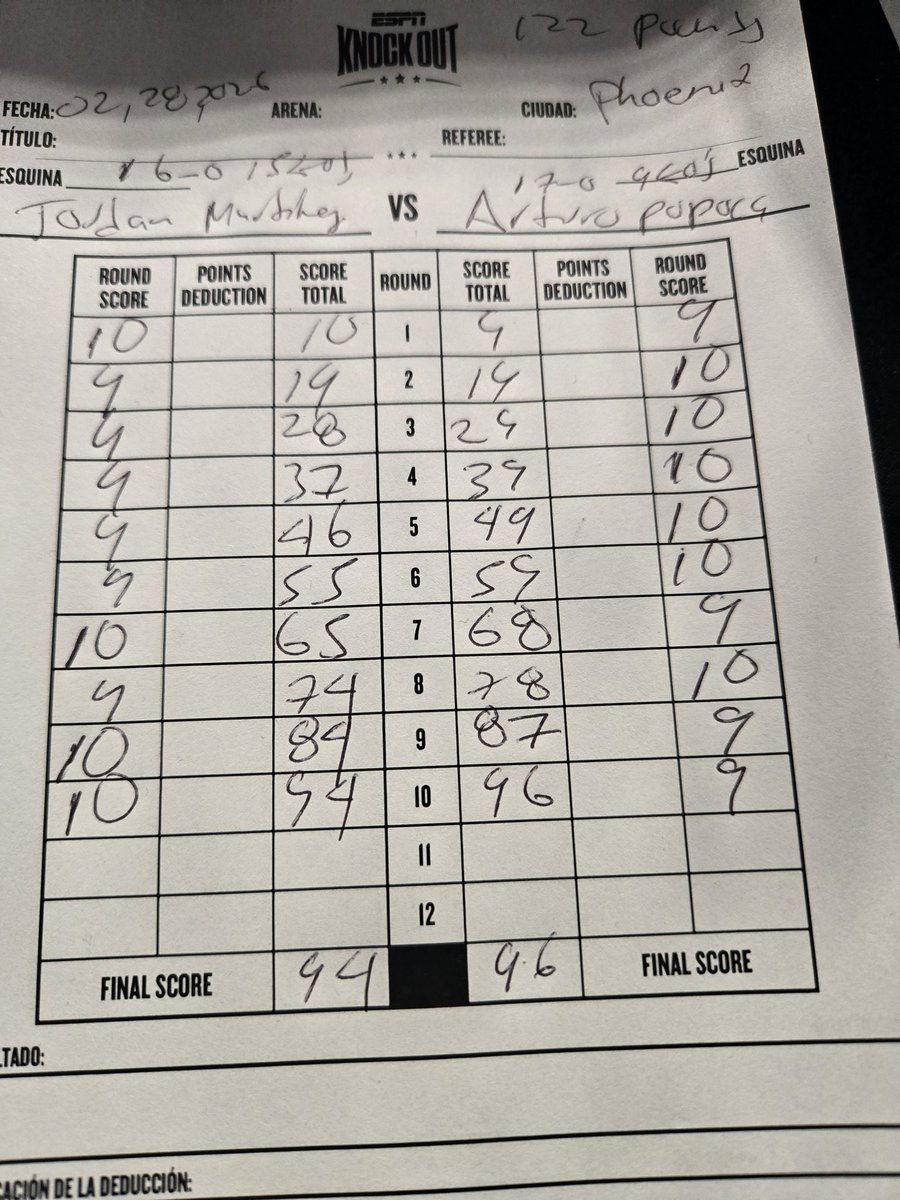 ESPN
KNOCKOUT
122 Pounds
FECHA: 02, 28, 2026 ARENA: CIUDAD: Phoenix
TÍTULO: REFEREE:
ESQUINA 16-0 15 KO's 17-0 9 KO's ESQUINA
Jordan Martinez VS Arturo popoca
ROUND SCORE POINTS DEDUCTION SCORE TOTAL ROUND SCORE TOTAL POINTS DEDUCTION ROUND SCORE
10 10 1 9 9
9 19 2 19 10
9 28 3 29 10
9 37 4 39 10
9 46 5 49 10
9 55 6 59 10
10 65 7 68 9
9 74 8 78 10
10 84 9 87 9
10 94 10 96 9
11
12
FINAL SCORE 94 96 FINAL SCORE
LTADO:
CACIÓN DE LA DEDUCCIÓN: